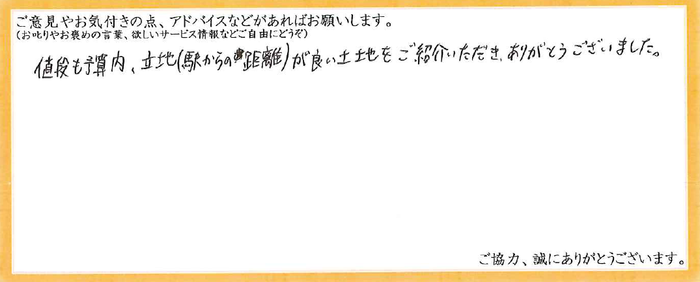 ご意見やお気付きの点、アドバイスなどがあればお願いします。
(お叱りやお褒めの言葉、欲しいサービス情報などご自由にどうぞ)
値段も予算内、立地(駅からの距離)が良い土地をご紹介いただき、ありがとうございました。
ご協力、誠にありがとうございます。